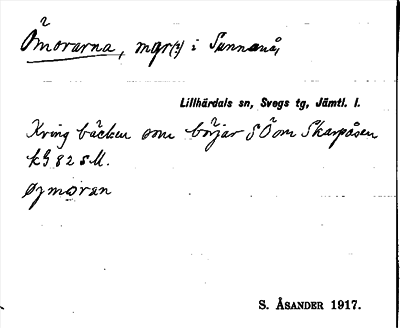 Ömorarna, mgr(?) i Sunnanå,
Lillhärdals sn, Svegs tg, Jämtl. l.
Kring bäcken som börjar SÖ om Skarpåsen
kG 82 SM.
øjmoran
S. ÅSANDER 1917.